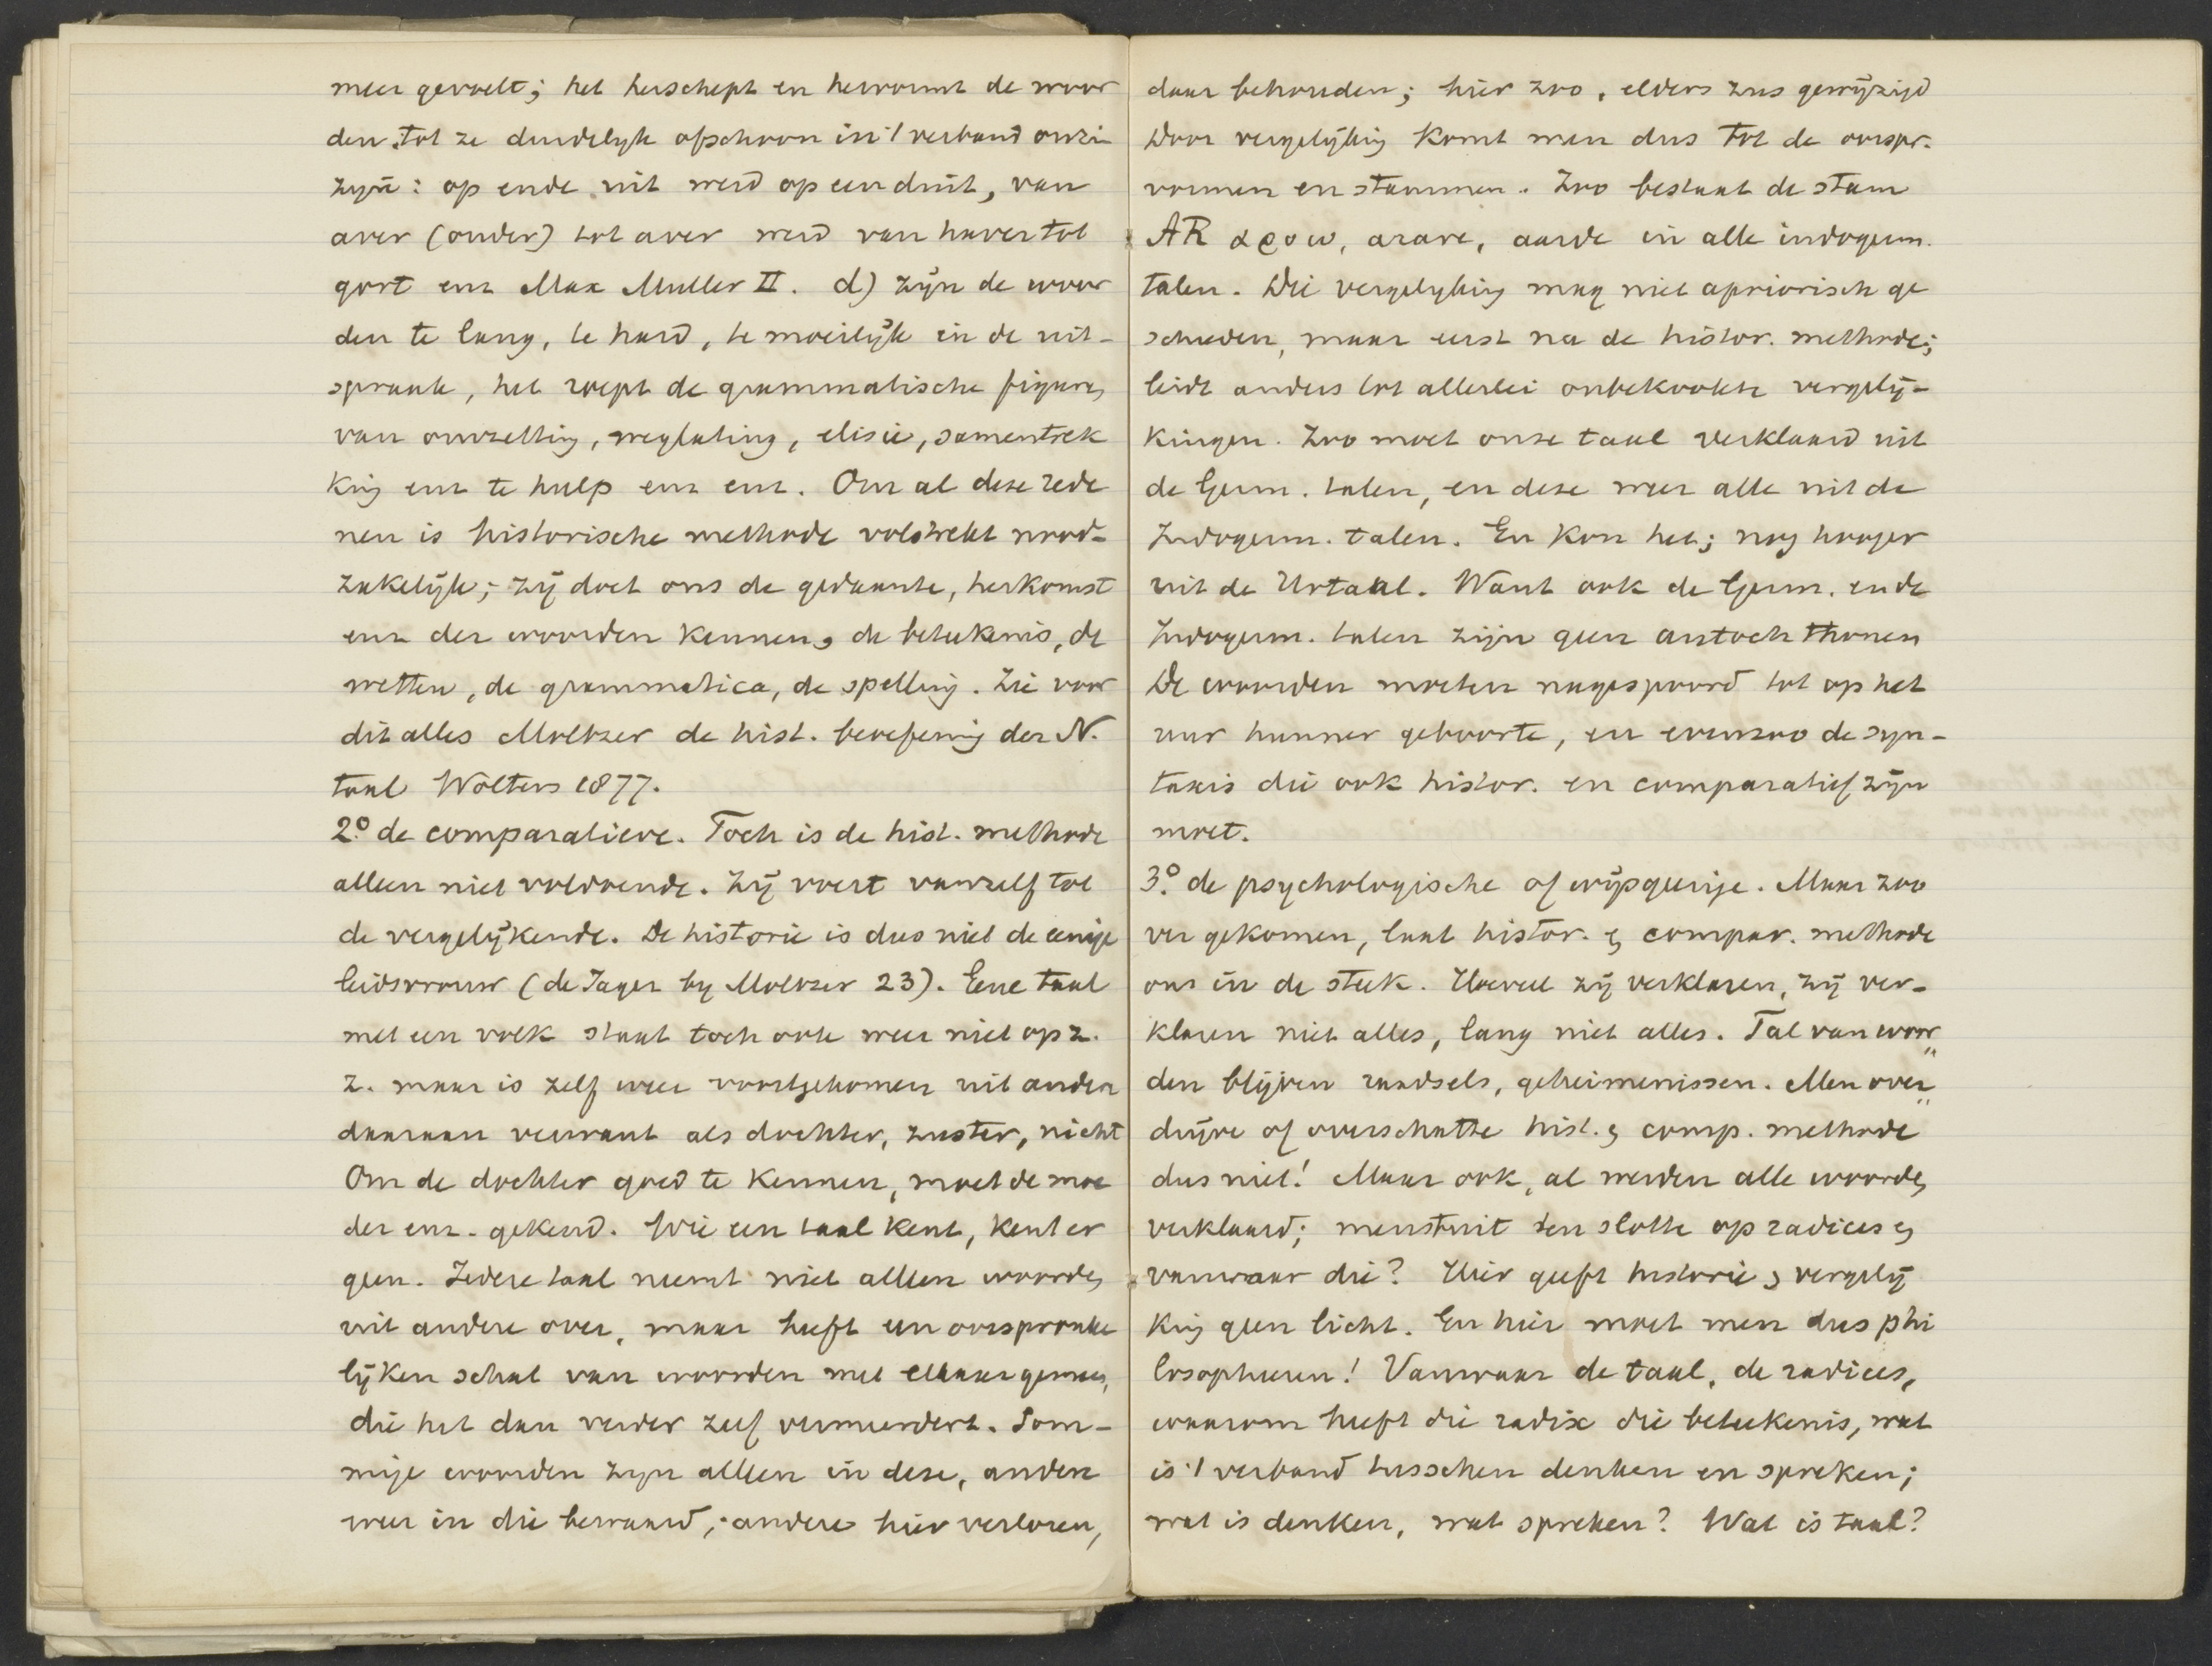 meer gevoelt; het herschept en hervormt de woor
den tot ze duidelyk ofschoon in 't verband onzin
zyn: op ende uit werd op een duit, van
aver (ouder) tot aver werd van haver tot
gort enz Max Muller II. d) zijn de woor
den te lang, te hard, te moeilijk in de uit-
spraak, het roept de grammatische figuren
van omzetting, weglating, elisie, samentrek
king enz te hulp enz enz. Om al deze rede
nen is historische methode volstrekt nood-
zakelijk; zij doet ons de gedaante, herkomst
enz der woorden kennen, de beteekenis, de
wetten, de grammatica, de spelling. Zie voor
dit alles Moltzer de hist. beoefening der N.
taal Wolters 1877.
2.o de comparatieve. Toch is de hist. methode
alleen niet voldoende. Zij voert vanzelf tot
de vergelijkende. De historie is dus niet de eenige
leidsvrouw (de Jager by Moltzer 23). Eene taal
met een volk staat toch ook weer niet op z.
z. maar is zelf weer voortgekomen uit andere
daaraan verwant als dochter, zuster, nicht
Om de dochter goed te kennen, moet de moe
der enz. gekend. Wie een taal kent, kent er
geen. Iedere taal neemt niet alleen woorden
uit andere over, maar heeft een oorspronke
lijken schat van woorden met elkaar gemeen,
die het dan verder zelf vermeerdert. Som-
mige woorden zyn alleen in deze, andere
weer in die bewaard; andere hier verloren,
daar behouden; hier zoo, elders zus gewijzigd
Door vergelijking komt men dus tot de oorspr.
vormen en stammen. Zoo bestaat de stam
AR αροω, arare, aarde in alle indogerm.
talen. Die vergelyking mag niet apriorisch ge
schieden, maar eerst na de histor. methode;
leidt anders tot allerlei onbekookte vergelij-
kingen. Zoo moet onze taal verklaard uit
de Germ. talen, en deze weer alle uit de
Indogerm. talen. En kon het; nog hooger
uit de Urtaal. Want ook de Germ. en de
Indogerm. talen zijn geen autochthonen
De woorden moeten nagespoord tot op het
uur hunner geboorte, en evenzoo de syn-
taxis die ook histor. en comparatief zijn
moet.
3.o de psychologische of wijsgeerige. Maar zoo
ver gekomen, laat histor. en compar. methode
ons in de steek. Hoeveel zij verklaren, zij ver-
klaren niet alles, lang niet alles. Tal van woor"
den blijven raadsels, geheimenissen. Men over"
drijve of overschatte hist. en comp. methode
dus niet! Maar ook, al werden alle woorden
verklaard; men stuit ten slotte op radices en
vanwaar die? Hier geeft historie en vergelij
king geen licht. En hier moet men dus phi
losopheeren! Vanwaar de taal, de radices,
waarom heeft die radix die beteekenis, wat
is 't verband tusschen denken en spreken;
wat is denken, wat spreken? Wat is taal?